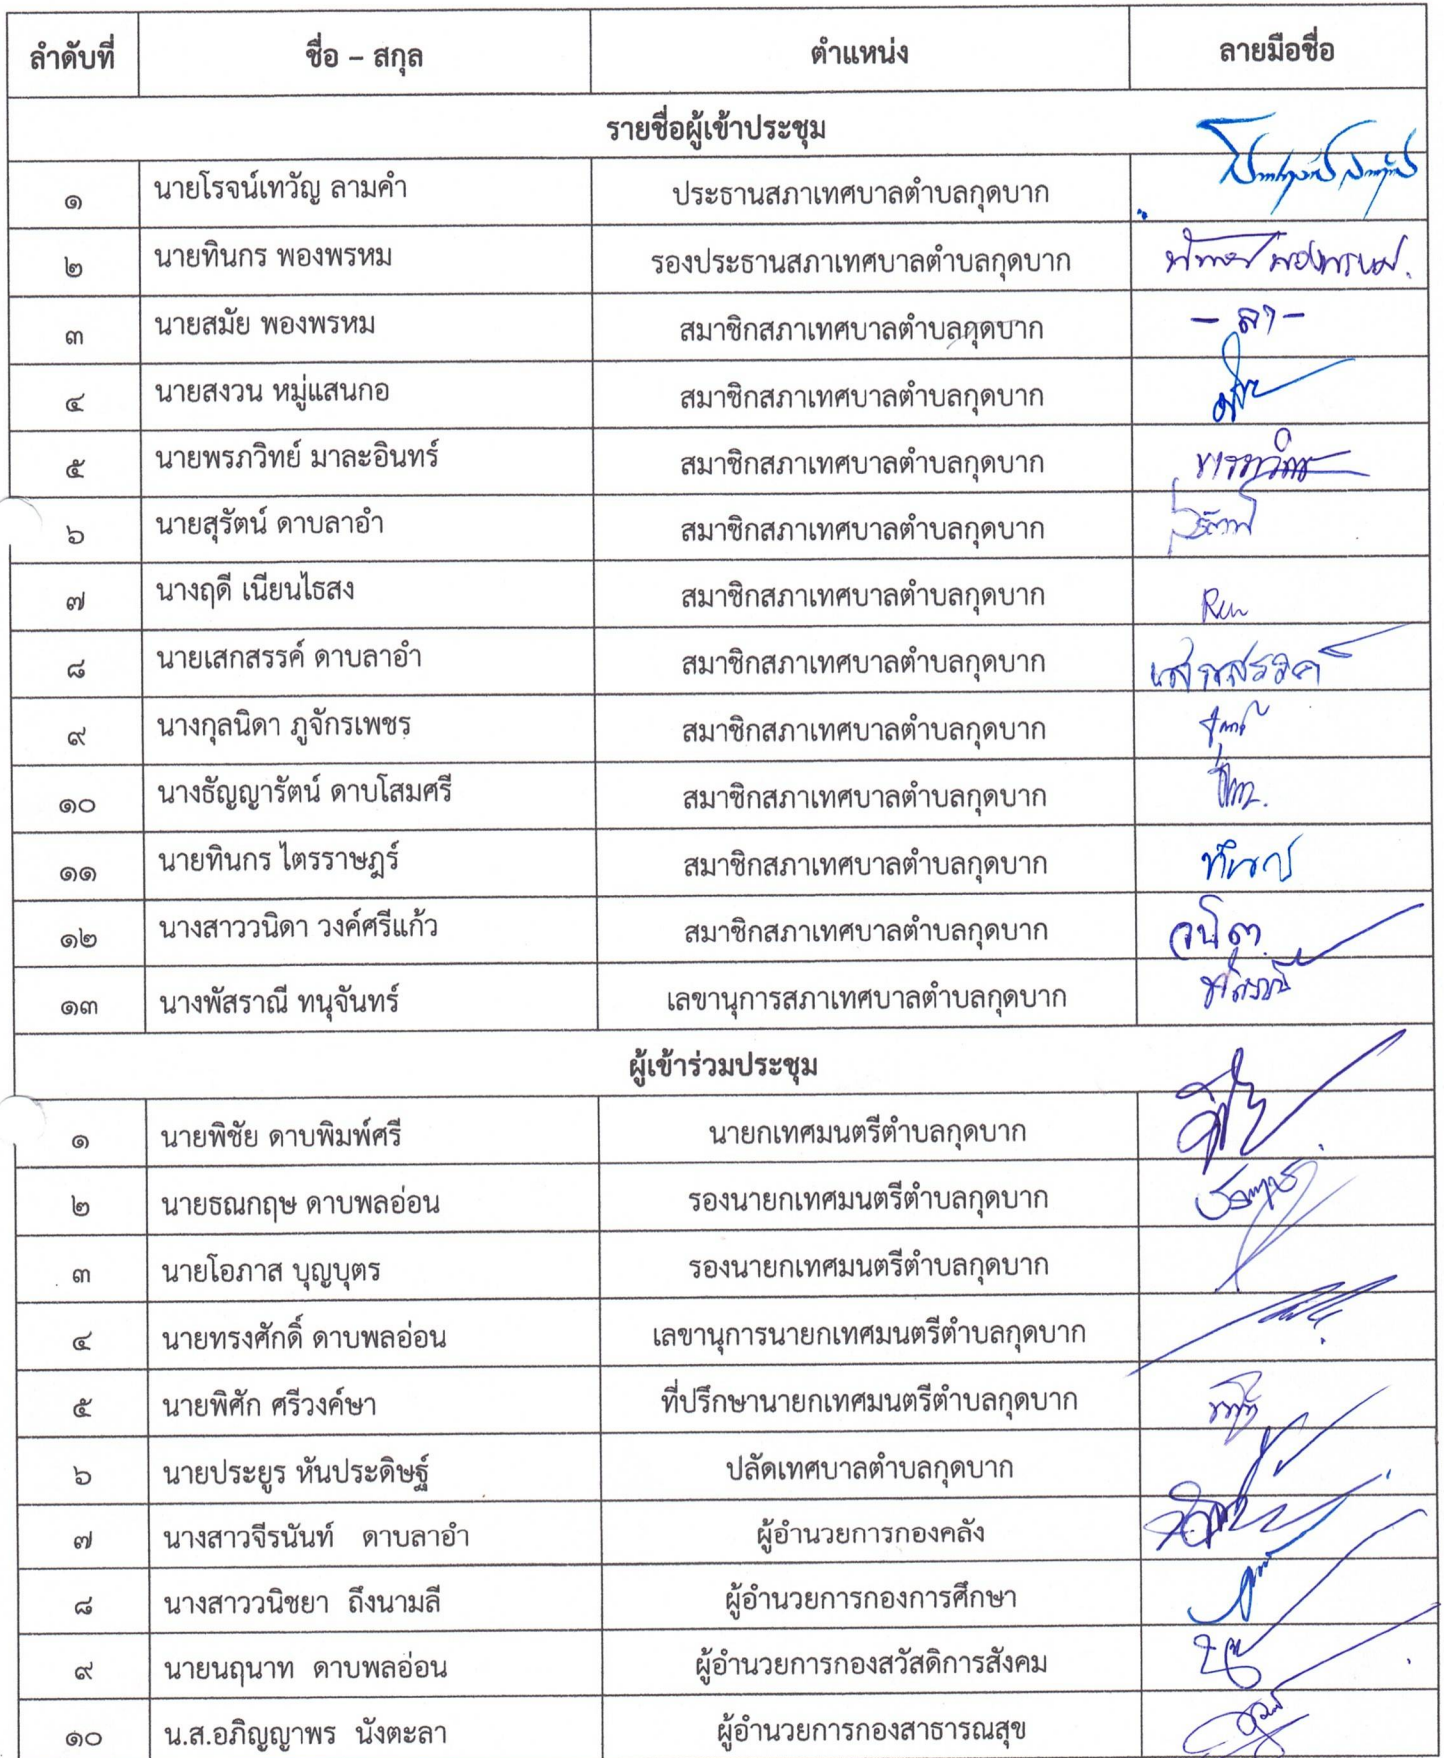 ลำดับที่ ชื่อ – สกุล ตำแหน่ง ลายมือชื่อ
รายชื่อผู้เข้าประชุม
๑ นายโรจน์เทวัญ ลามคำ ประธานสภาเทศบาลตำบลกุดบาก
๒ นายทินกร พองพรหม รองประธานสภาเทศบาลตำบลกุดบาก
๓ นายสมัย พองพรหม สมาชิกสภาเทศบาลตำบลกุดบาก - ลา -
๔ นายสงวน หมู่แสนกอ สมาชิกสภาเทศบาลตำบลกุดบาก
๕ นายพรภวิทย์ มาละอินทร์ สมาชิกสภาเทศบาลตำบลกุดบาก
๖ นายสุรัตน์ ดาบลาอำ สมาชิกสภาเทศบาลตำบลกุดบาก
๗ นางฤดี เนียนไธสง สมาชิกสภาเทศบาลตำบลกุดบาก
๘ นายเสกสรรค์ ดาบลาอำ สมาชิกสภาเทศบาลตำบลกุดบาก เสกสรรค์
๙ นางกุลนิดา ภูจักรเพชร สมาชิกสภาเทศบาลตำบลกุดบาก
๑๐ นางธัญญารัตน์ ดาบโสมศรี สมาชิกสภาเทศบาลตำบลกุดบาก
๑๑ นายทินกร ไตรราษฎร์ สมาชิกสภาเทศบาลตำบลกุดบาก ทินกร
๑๒ นางสาววนิดา วงค์ศรีแก้ว สมาชิกสภาเทศบาลตำบลกุดบาก วนิดา
๑๓ นางพัสราณี ทนุจันทร์ เลขานุการสภาเทศบาลตำบลกุดบาก
ผู้เข้าร่วมประชุม
๑ นายพิชัย ดาบพิมพ์ศรี นายกเทศมนตรีตำบลกุดบาก
๒ นายธณกฤษ ดาบพลอ่อน รองนายกเทศมนตรีตำบลกุดบาก
๓ นายโอภาส บุญบุตร รองนายกเทศมนตรีตำบลกุดบาก
๔ นายทรงศักดิ์ ดาบพลอ่อน เลขานุการนายกเทศมนตรีตำบลกุดบาก
๕ นายพิศัก ศรีวงค์ษา ที่ปรึกษานายกเทศมนตรีตำบลกุดบาก
๖ นายประยูร หันประดิษฐ์ ปลัดเทศบาลตำบลกุดบาก
๗ นางสาวจีรนันท์ ดาบลาอำ ผู้อำนวยการกองคลัง
๘ นางสาววนิชยา ถึงนามลี ผู้อำนวยการกองการศึกษา
๙ นายนฤนาท ดาบพลอ่อน ผู้อำนวยการกองสวัสดิการสังคม
๑๐ น.ส.อภิญญาพร นังตะลา ผู้อำนวยการกองสาธารณสุข